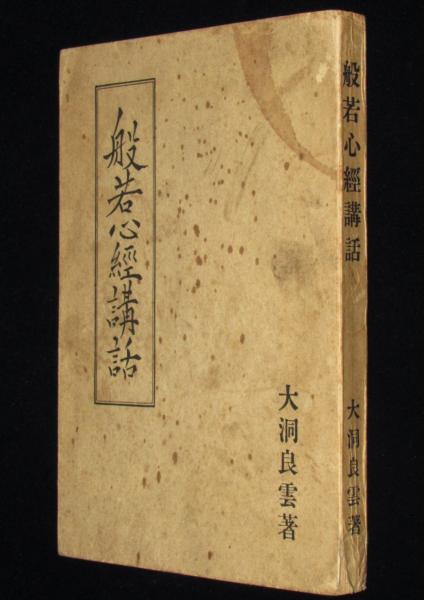 般若心經講話
大洞良雲著
般若心經講話
大洞良雲著